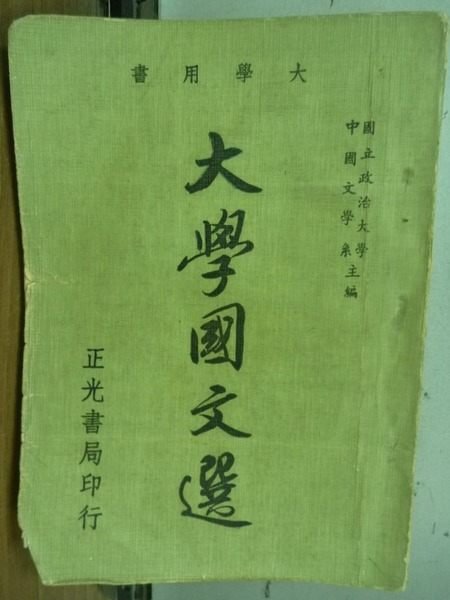 大學用書
國立政治大學
中國文學系主編
大學國文選
正光書局印行